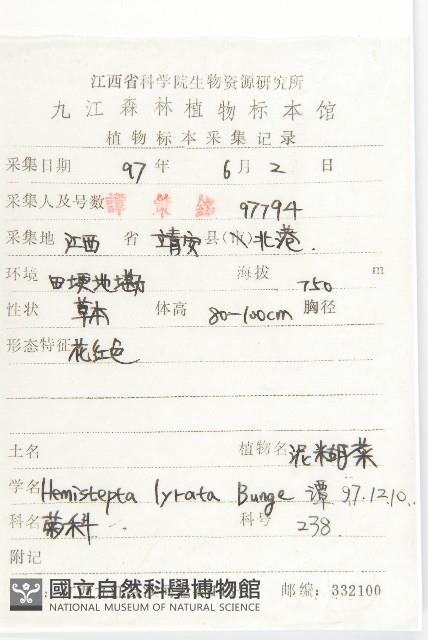 江西省科学院生物资源研究所
九江森林植物标本馆
植物标本采集记录
采集日期 97 年 6 月 2 日
采集人及号数 譚策銘 97794
采集地 江西 省 靖安 县(市) 北港.
环境 田埂地墈 海拔 750 m
性状 草本 体高 80-100cm 胸径
形态特征 花红色
土名 植物名 泥糊菜
学名 Hemistepta lyrata Bunge 谭 97.12.10.
科名 菊科 科号 238.
附记
國立自然科學博物館 邮编: 332100
NATIONAL MUSEUM OF NATURAL SCIENCE